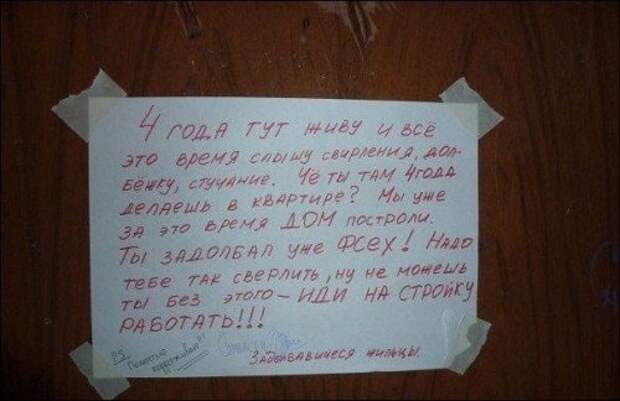 4 года тут живу и всё
это время слышу свирления, дол-
бёжку, стучание. Чё ты там 4года
делаешь в квартире? Мы уже
за это время ДОМ построли.
Ты задолбал уже ФСЕХ! Надо
тебе так сверлить, ну не можешь
ты без этого — ИДИ НА СТРОЙКУ
РАБОТАТЬ!!!
P.S. Полностью поддерживаю!!!
Задолбавшиеся жильцы.